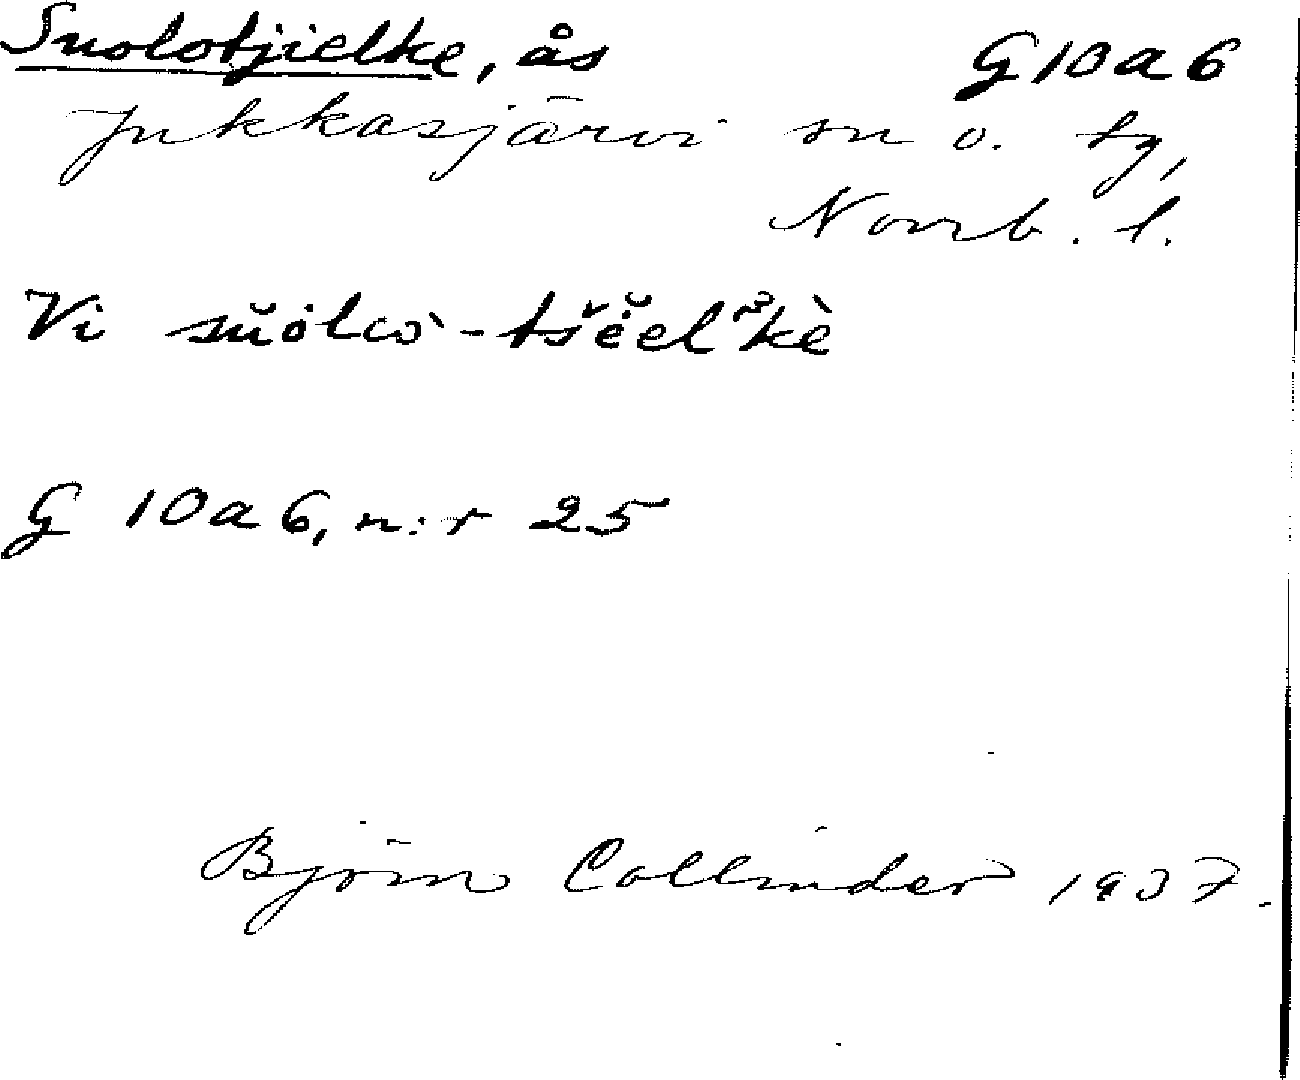 Suolotjielke, ås G10a6
Jukkasjärvi sn o. tg,
Norrb. l.
Vi sŭȯlὼ-tšĕ̇elˀkė̀
G 10a6, n:r 25
Björn Collinder 1937.